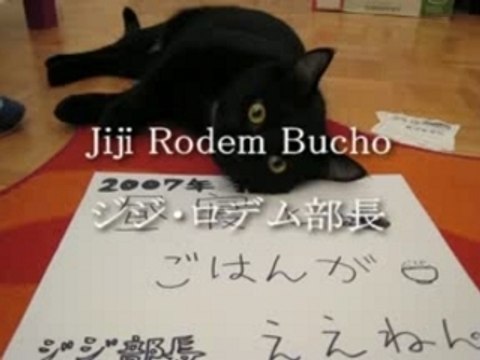 Jiji Rodem Bucho
2007年
ジジ・ロデム部長
ごはんが
ええねん
ジジ部長